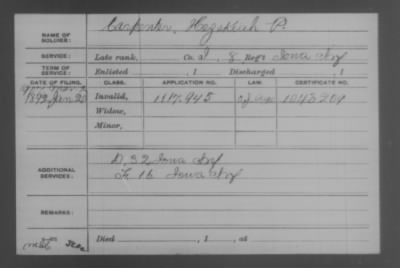 NAME OF SOLDIER: Carpenter, Hezekiah P.
SERVICE: Late rank, Co. I, 8 Reg't Iowa Inf
TERM OF SERVICE: Enlisted , 1 Discharged , 1
DATE OF FILING. CLASS. APPLICATION NO. LAW. CERTIFICATE NO.
1892 Jan 20 Invalid, 1043209
Widow,
Minor,
ADDITIONAL SERVICES: D, 32 Iowa Inf
16 Iowa Inf
REMARKS:
Died , 1 , at